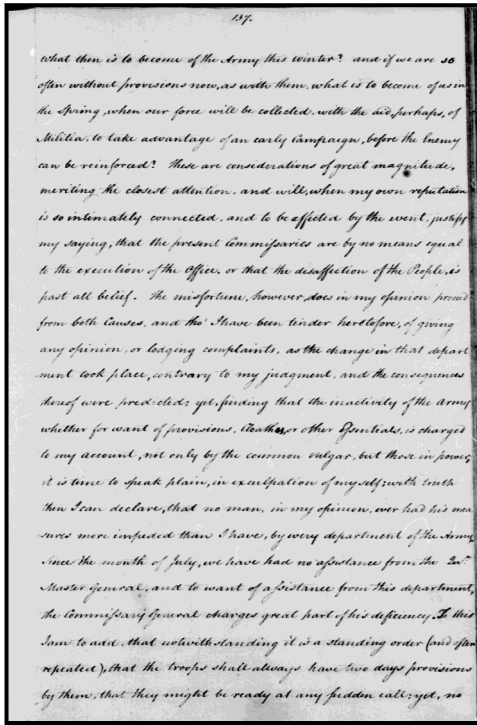 137.
what then is to become of the Army this Winter? and if we are so
often without provisions now, as with them, what is to become of us in
the Spring, when our force will be collected, with the aid perhaps, of
Militia, to take advantage of an early Campaign, before the Enemy
can be reinforced? These are considerations of great magnitude,
meriting the closest attention, and will, when my own reputation
is so intimately connected, and to be effected by the event, justify
my saying, that the present Commissaries are by no means equal
to the execution of the Office, or that the disaffection of the People, is
past all belief. The misfortune, however, does in my opinion proceed
from both Causes, and tho' I have been tender heretofore, of giving
any opinion, or lodging complaints, as the change in that depart
ment took place, contrary to my judgment, and the consequences
thereof were predicted; yet, finding that the inactivity of the Army
whether for want of provisions, Cloathes, or other Essentials, is charged
to my account, not only by the common vulgar, but those in power,
it is time to speak plain, in exculpation of myself; with truth
then I can declare, that no man, in my opinion, ever had his mea
sures more impeded than I have, by every department of the Army
Since the month of July, we have had no assistance from the Qur.
Master General, and to want of assistance from this department,
the Commissary General charges great part of his deficiency. To this
I am to add, that notwithstanding it is a standing order (and often
repeated), that the troops shall always have two days provisions
by them, that they might be ready at any sudden call; yet, no